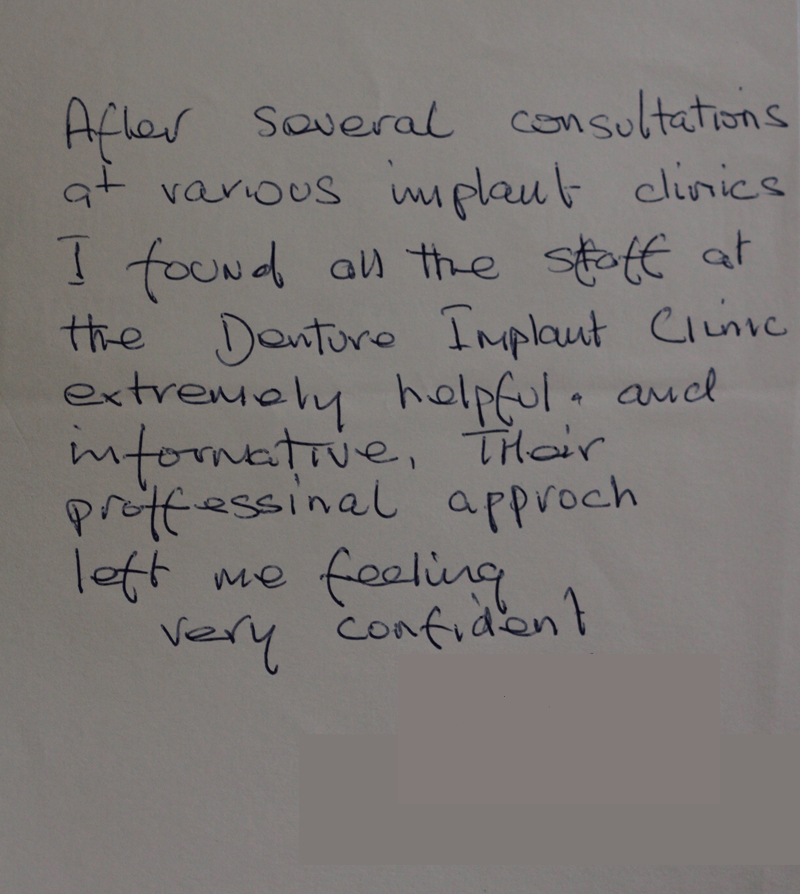 After several consultations
at various implant clinics
I found all the staff at
the Denture Implant Clinic
extremely helpful. and
informative, THeir
proffessinal approch
left me feeling
very confident